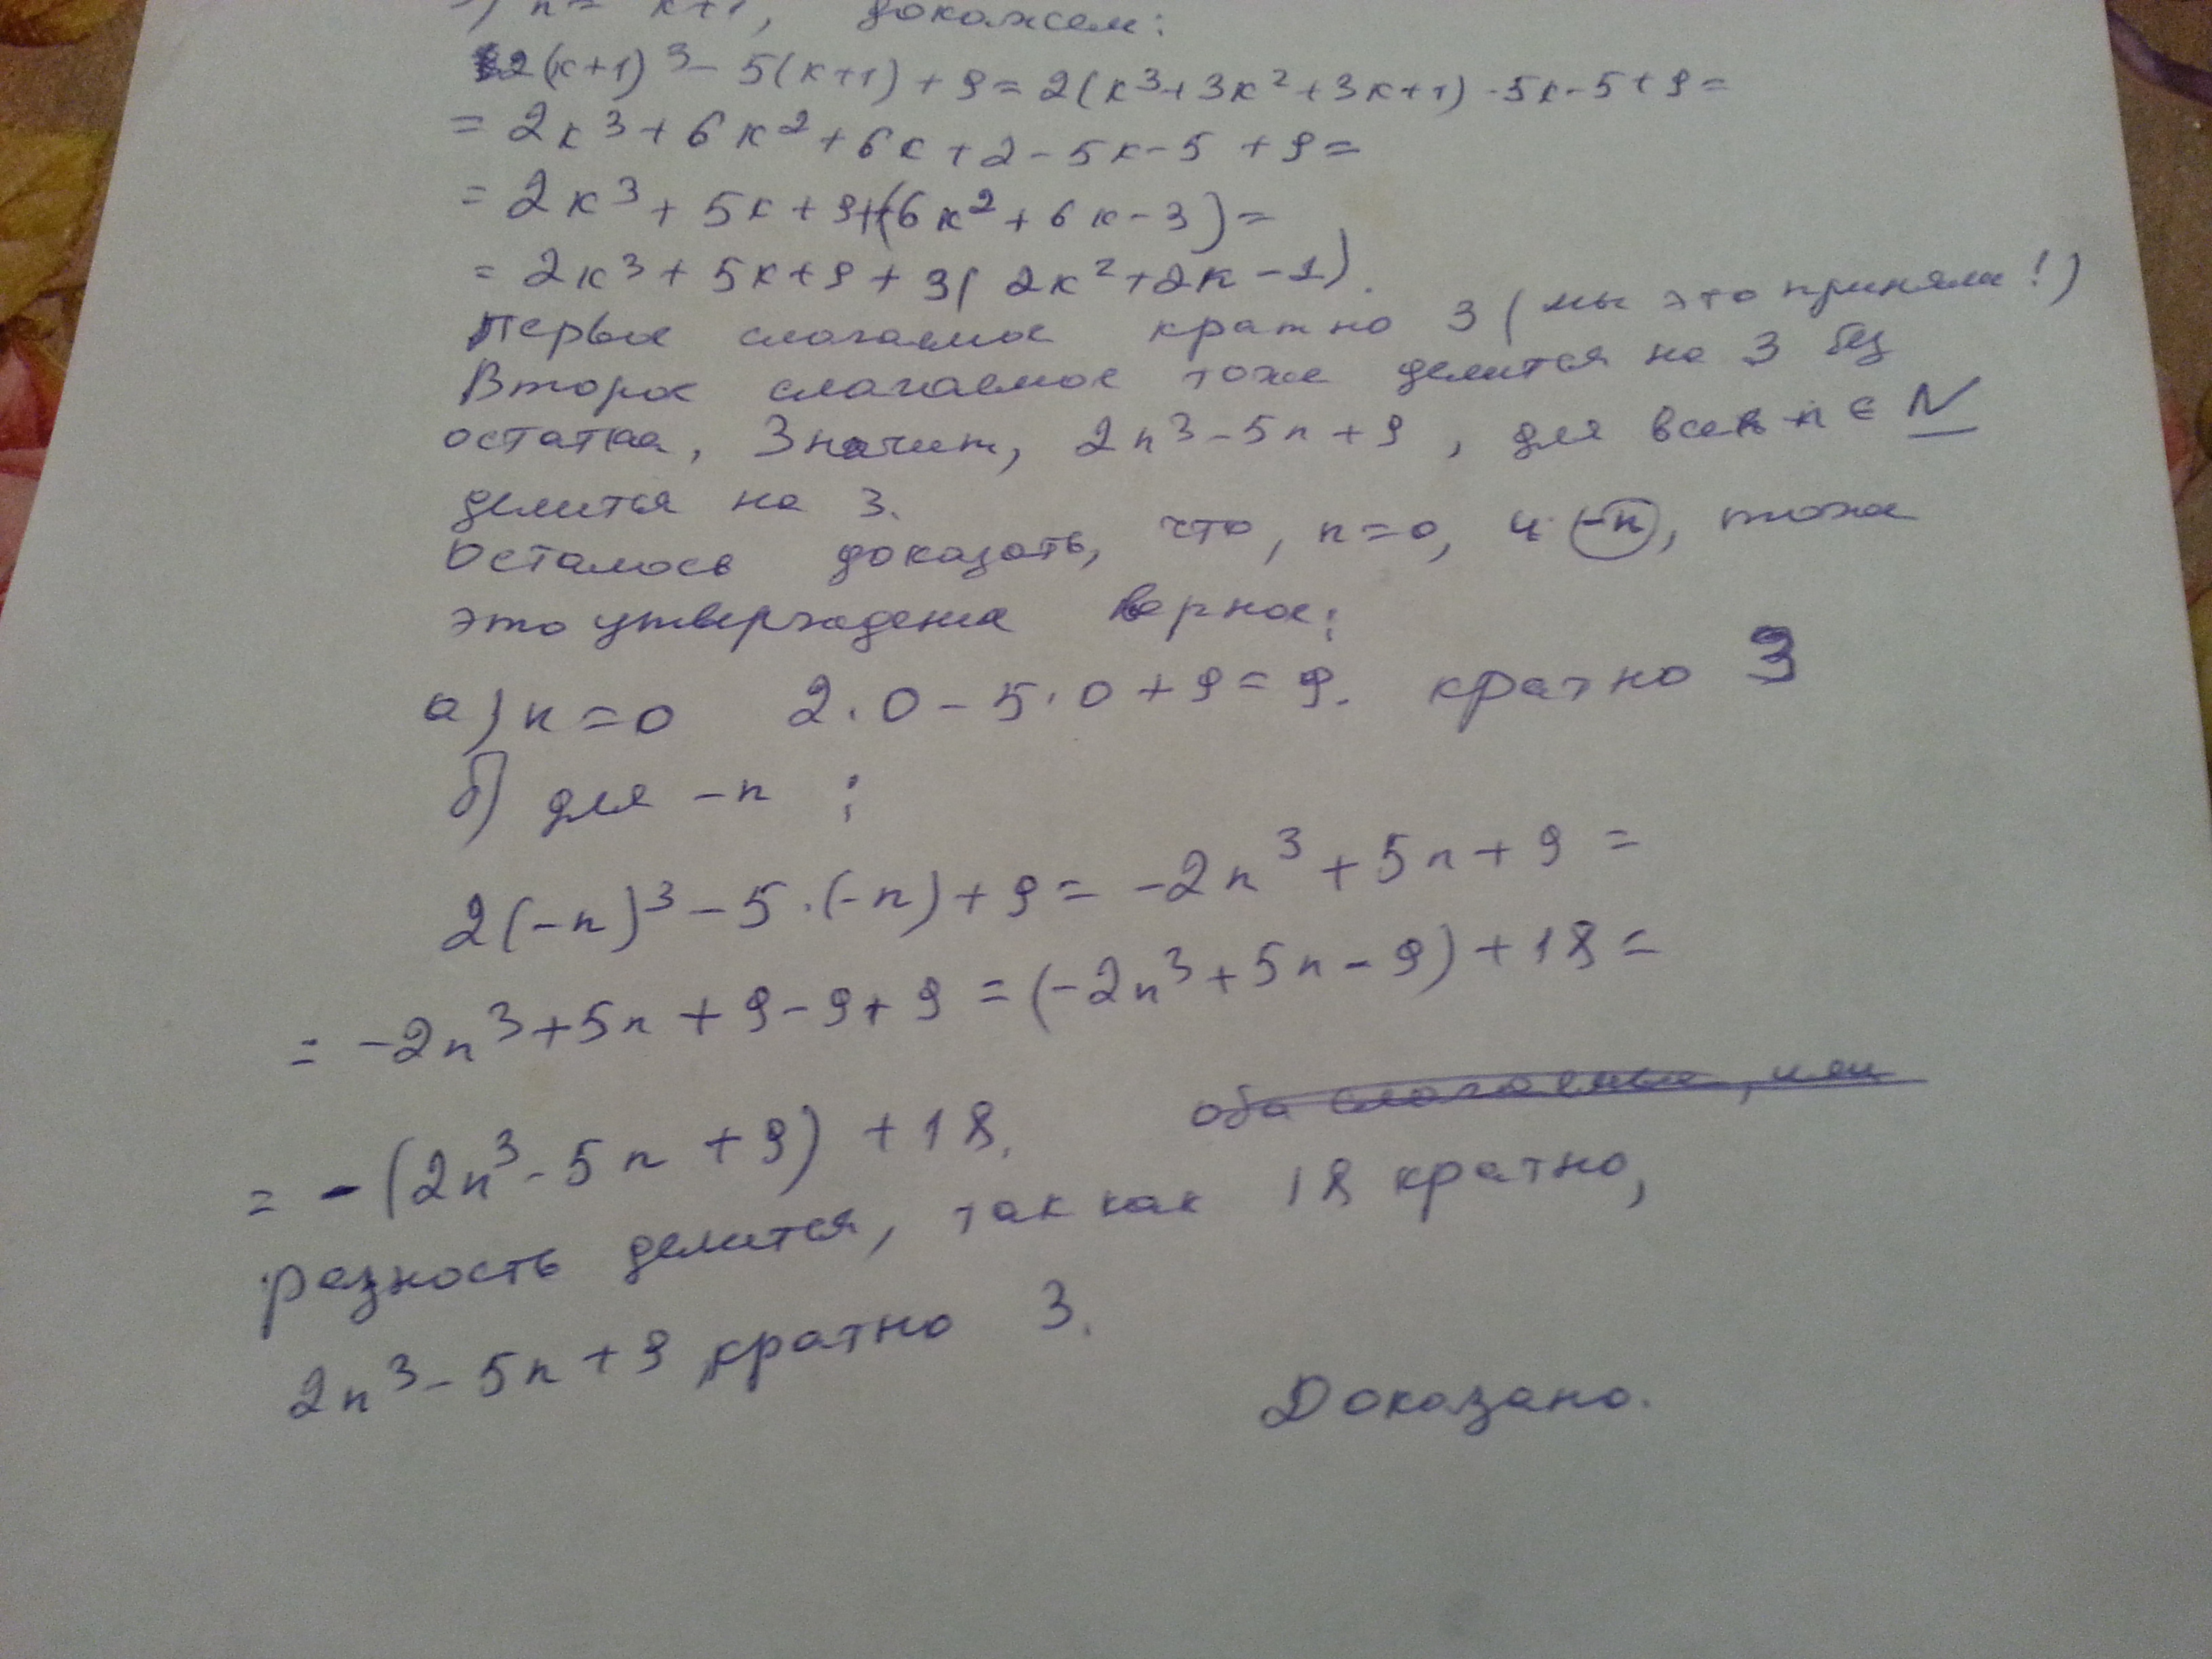 ) n = к+1, докажем:
2(к+1)³ - 5(к+1) + 9 = 2(к³+3к²+3к+1) -5к-5+9=
= 2к³ + 6к² + 6к + 2 - 5к - 5 + 9 =
= 2к³ + 5к + 9 + (6к² + 6к - 3) =
= 2к³ + 5к + 9 + 3(2к²+2к-1).
Первое слагаемое кратно 3 (мы это приняли!)
Второе слагаемое тоже делится на 3 без
остатка, Значит, 2n³-5n+9, для всех n ∈ N
делится на 3.
Осталось доказать, что, n=0, и (-n), тоже
это утверждение верное:
а) n=0 2·0-5·0+9=9. кратно 3
б) для -n :
2(-n)³-5·(-n)+9= -2n³+5n+9=
= -2n³+5n+9-9+9=(-2n³+5n-9)+18=
= -(2n³-5n+9)+18. оба слагаемые, или
разность делится, так как 18 кратно,
2n³-5n+9 кратно 3.
Доказано.